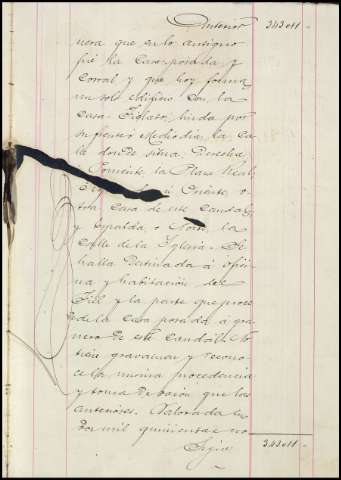 Anterior 343011 -
nera que en lo antiguo
fué la Casa-posada y
Corral y que hoy forma
un solo edificio con la
Casa linda por
su frente Mediodia, la Ca
lle donde situa Derecha
Poniente, la Plaza Real,
Oriente o
tra Casa de este Caudal,
y Espalda o Norte, la
Calle de la Yglesia. Se
halla Destinada á ofici
na y habitacion del
Fiel y la parte que proce
de de la Casa posada á gra
nero de este Caudal. No
tiene gravamen y recono
ce la misma procedencia
y toma de razon que las
anteriores. Valorada en
Dos mil quinientas no
Sigue 343011 -